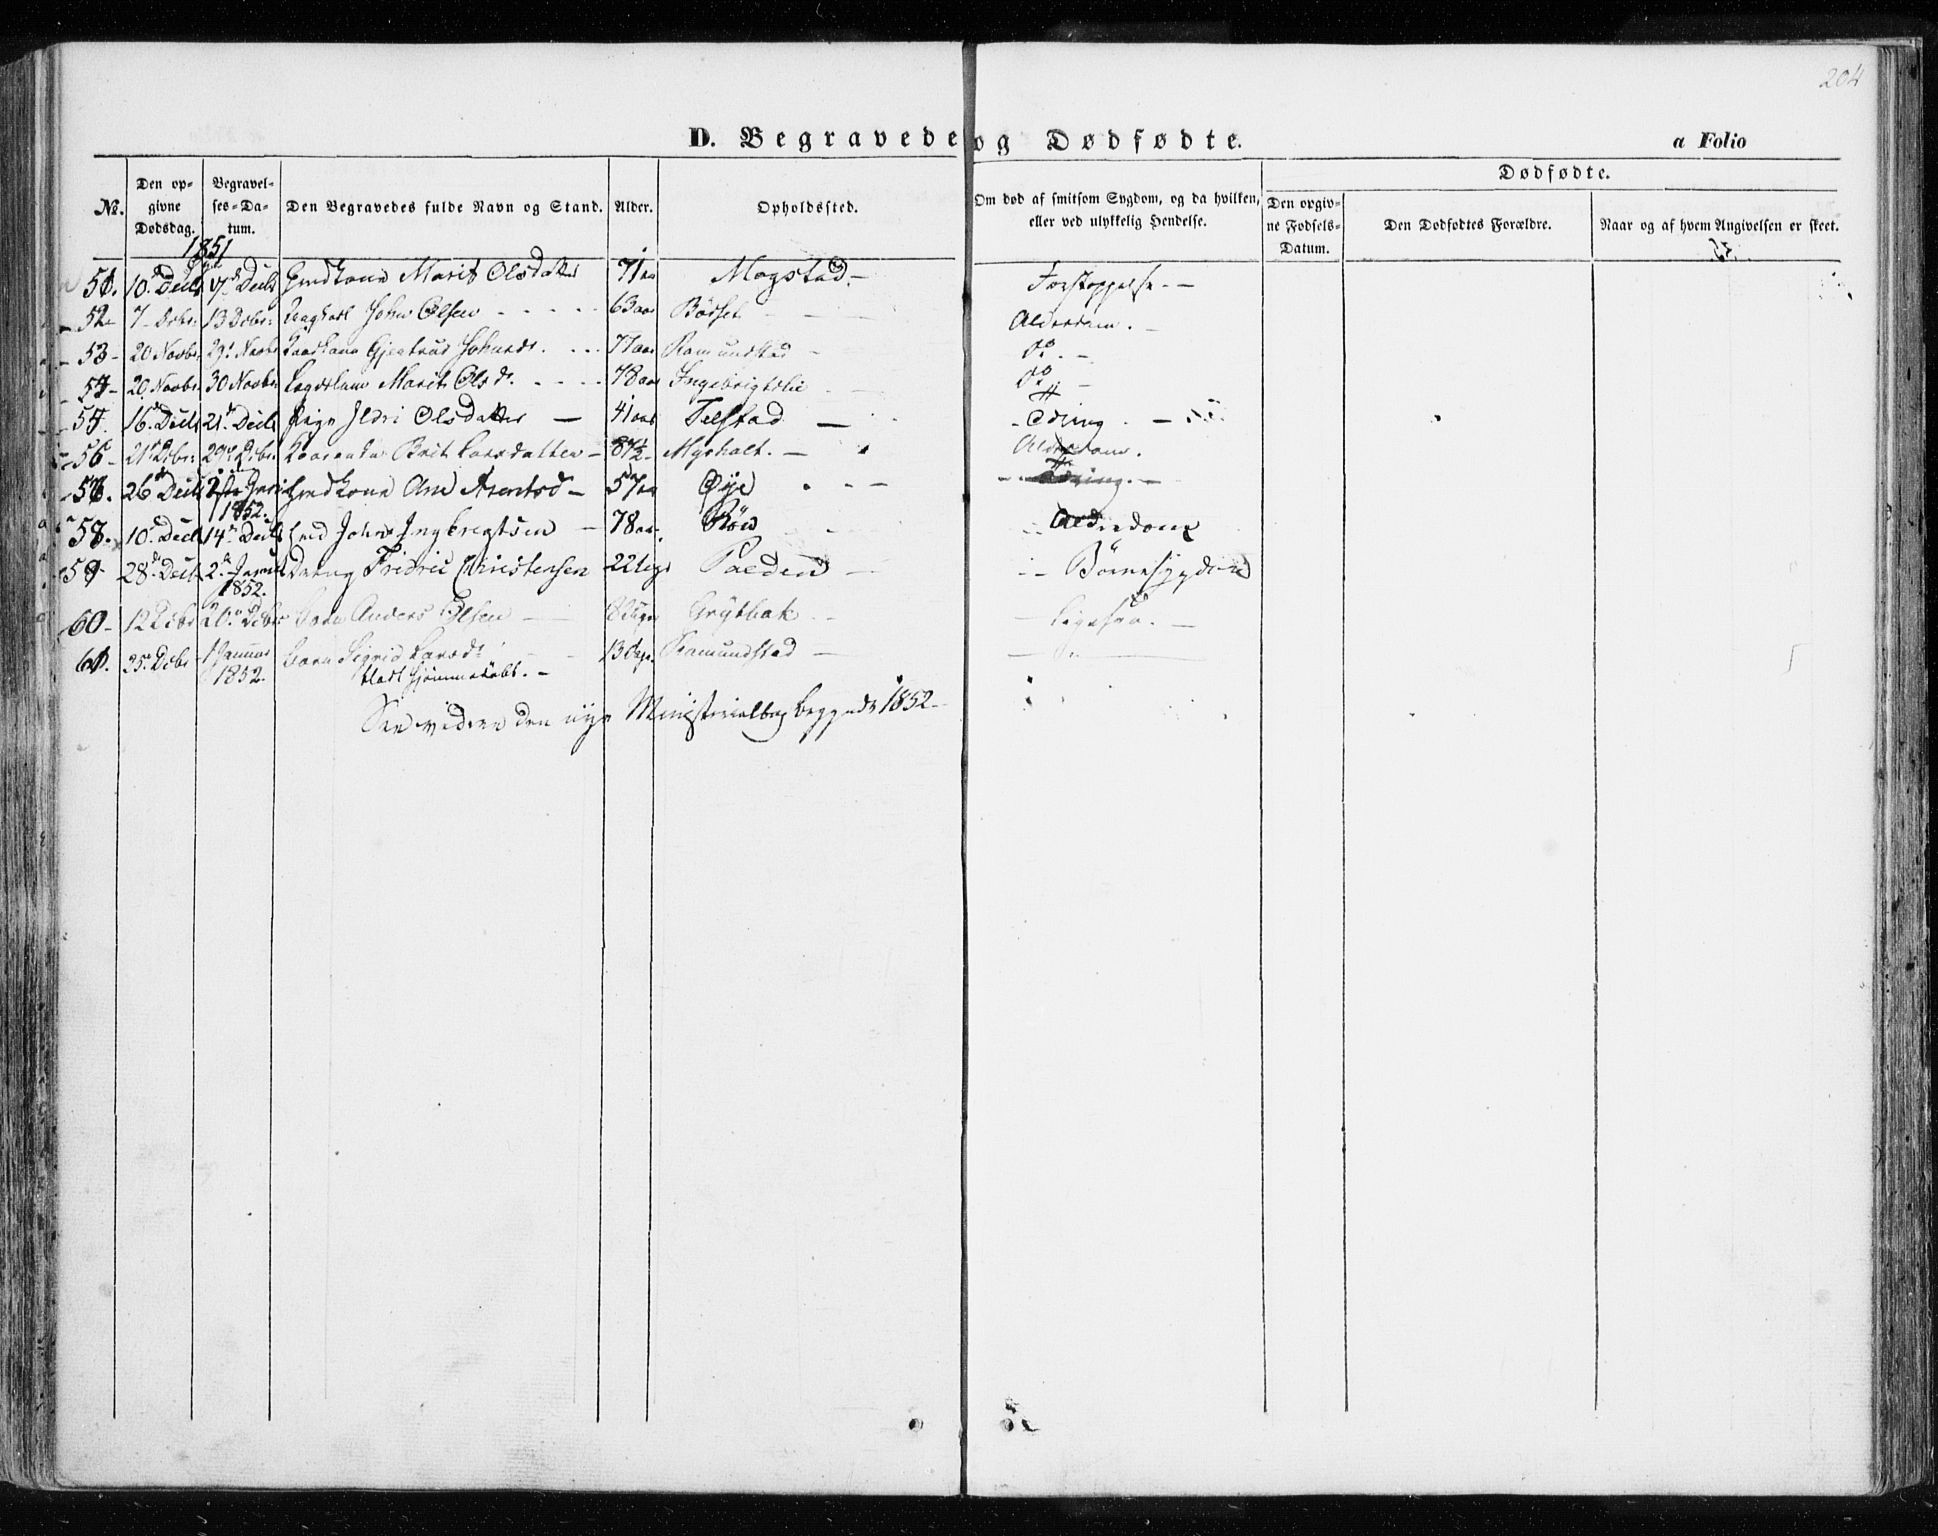 204
D. Begravede og Dødfødte.
a Folio
No.
Den opgivne Dødsdag.
Begravelses-Datum.
Den Begravedes fulde Navn og Stand.
Alder.
Opholdssted.
Om død af smitsom Sygdom, og da hvilken, eller ved ulykkelig Hendelse.
Dødfødte.
Den opgivne Fødsels-Datum.
Den Dødfødtes Forældre.
Naar og af hvem Angivelsen er skeet.
1851
51. 10 Decb 17 Decb Marit Olsdatter 71 aar Mogstad - Forstoppelse. -
52 - 7 - Decbr 13 Decbr John Olsen 63 aar Bøvset Alderdom. -
53 - 20 Novbr 29 Novbr Gjertrud Johnsd. 77 aar Ramundstad - do. -
54 - 20 Novbr 30 Novbr Marit Olsd. 78 aar Ingebrigtslie do -
55. 16 Decb 21 Decb Pige Ildri Olsdatter - 41 aar Telstad -
56 - 21 Decbr 29 Decbr Brit Larsdatter - 87½ - Myrholt. - Alderdom.
57. 26 Decb Ane Arentsd - 57 aar Øye -
1852.
58. 10 Decb 14 Decb John Ingebrigtsen - 78 aar. Røv Alderdom
59 28 Decb 2 Januar Dreng Fridric Christensen 22 Dage - Børnesygdom
1852.
60 - 12 Decbr 20 Decbr Barn Anders Olsen 8 Dage Grytbak -
61. 25 Decbr 1 Januar Barn Sigrid Larsd 13 Dage. Ramundstad -
1852. hjemmedøbt. -
See videre den nye Ministerialbog 1852 -